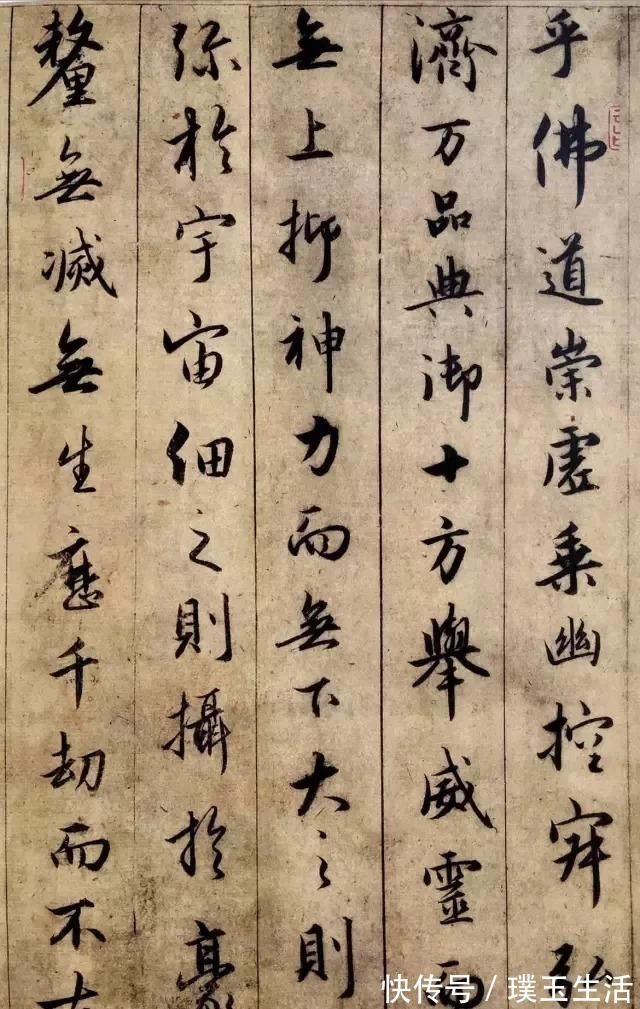 乎佛道崇虛乘幽控寂弘
濟万品典御十方舉威靈而
無上抑神力而無下大之則
弥於宇宙細之則攝於毫
釐無滅無生歷千劫而不古
快传号/璞玉生活